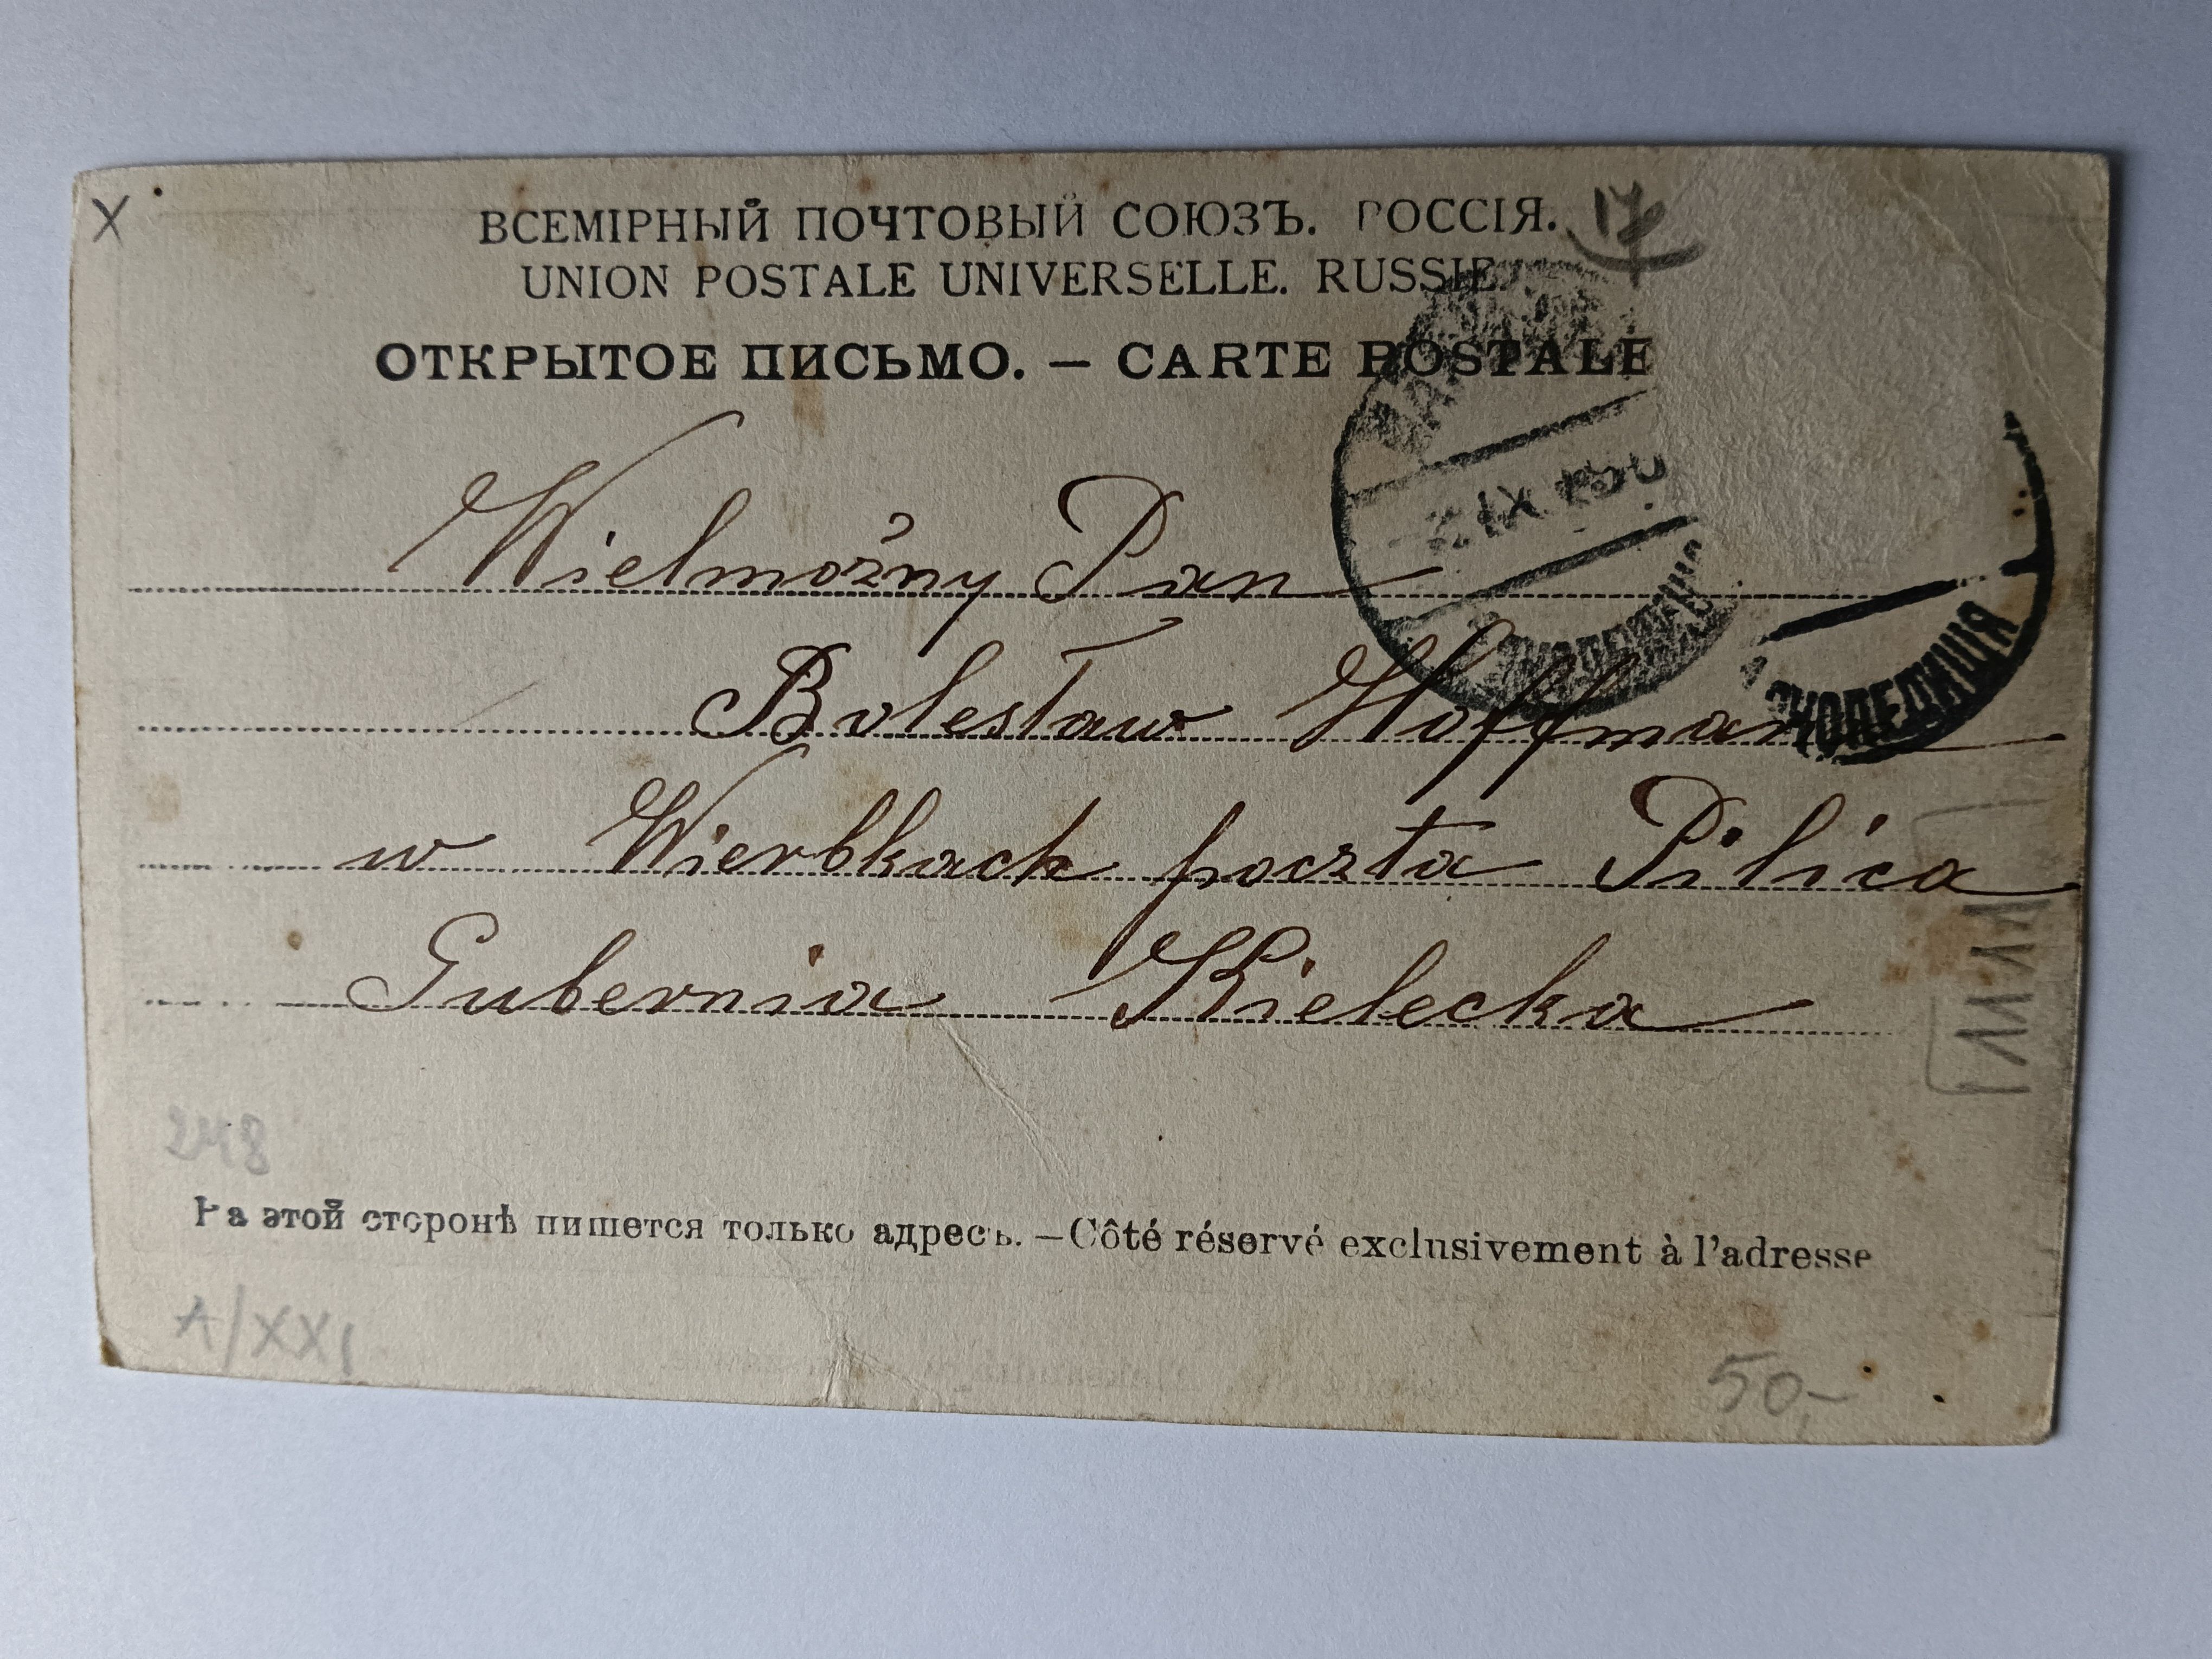 X
ВСЕМІРНЫЙ ПОЧТОВЫЙ СОЮЗЪ. РОССІЯ.
17
UNION POSTALE UNIVERSELLE. RUSSIE.
ОТКРЫТОЕ ПИСЬМО. — CARTE POSTALE
IX
Wielmożny Pan
Bolesław Hoffman
ЭКСПЕДИЦІЯ
w Wierbkach poczta Pilica
Gubernia Kielecka
248
На этой сторонѣ пишется только адресъ. — Côté réservé exclusivement à l'adresse
A/XXI
50,-